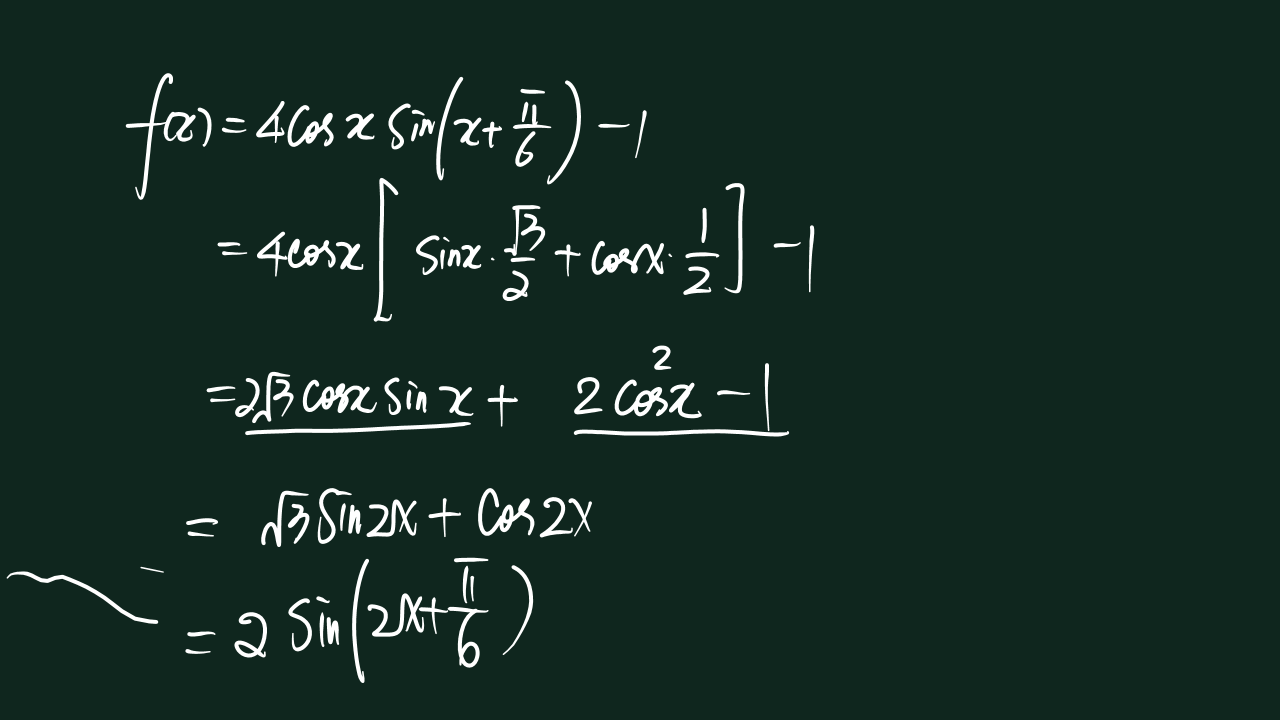 f(x) = 4cos x sin(x+π/6) − 1
= 4cosx[sinx·√3/2 + cosx·1/2] − 1
= 2√3 cosx sin x + 2cos²x − 1
= √3 sin2x + cos2x
= 2 sin(2x+π/6)